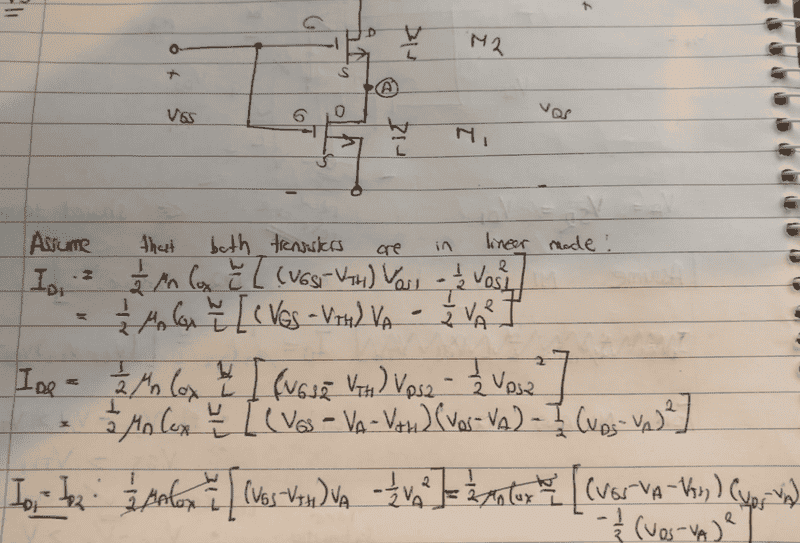 G D W/L M2
S
+ A
VGS G D W/L M1 VDS
S
- -
Assume that both transistors are in linear mode:
I_D1 = 1/2 μn Cox W/L [(VGS1-VTH) VDS1 - 1/2 VDS1²]
= 1/2 μn Cox W/L [(VGS - VTH) VA - 1/2 VA²]
I_D2 = 1/2 μn Cox W/L [(VGS2 - VTH) VDS2 - 1/2 VDS2²]
= 1/2 μn Cox W/L [(VGS - VA - VTH)(VDS - VA) - 1/2 (VDS-VA)²]
I_D1 = I_D2 : 1/2 μn Cox W/L [(VGS-VTH)VA - 1/2 VA²] = 1/2 μn Cox W/L [(VGS-VA-VTH) (VDS-VA)
- 1/2 (VDS-VA)²]